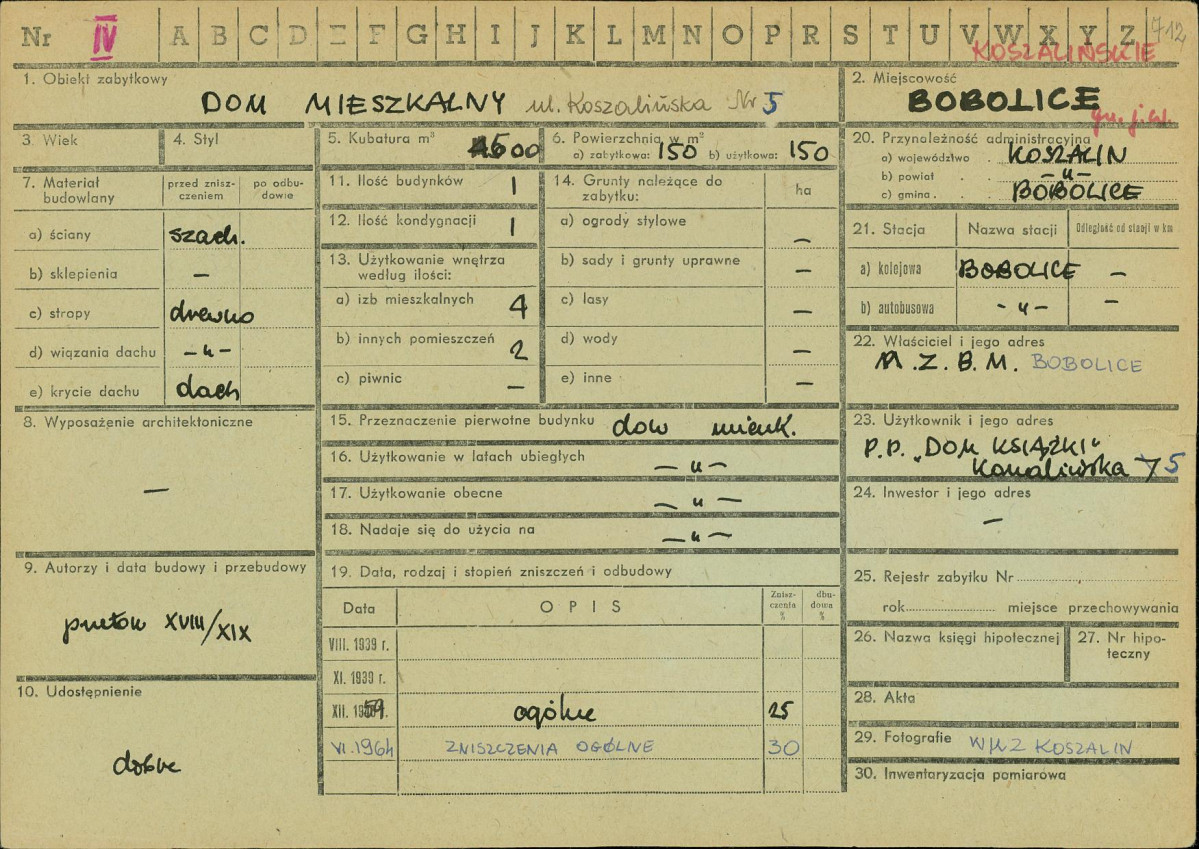 Nr IV A B C D E F G H I J K L M N O P R S T U V W X Y Z 712
KOSZALIŃSKIE
1. Obiekt zabytkowy
DOM MIESZKALNY ul. Koszalińska Nr 5
2. Miejscowość
BOBOLICE
3. Wiek
4. Styl
5. Kubatura m³ 600
6. Powierzchnia w m²
a) zabytkowa: 150 b) użytkowa: 150
20. Przynależność administracyjna
a) województwo KOSZALIN
b) powiat -"-
c) gmina BOBOLICE
7. Materiał budowlany
przed zniszczeniem
po odbudowie
a) ściany szach.
b) sklepienia —
c) stropy drewno
d) wiązania dachu -"-
e) krycie dachu dach
11. Ilość budynków 1
12. Ilość kondygnacji 1
13. Użytkowanie wnętrza
według ilości:
a) izb mieszkalnych 4
b) innych pomieszczeń 2
c) piwnic —
14. Grunty należące do
zabytku:
ha
a) ogrody stylowe —
b) sady i grunty uprawne —
c) lasy —
d) wody —
e) inne —
21. Stacja
Nazwa stacji
Odległość od stacji w km
a) kolejowa BOBOLICE —
b) autobusowa -"- —
22. Właściciel i jego adres
M.Z.B.M. BOBOLICE
8. Wyposażenie architektoniczne
—
15. Przeznaczenie pierwotne budynku dom mieszk.
16. Użytkowanie w latach ubiegłych -"-
17. Użytkowanie obecne -"-
18. Nadaje się do użycia na -"-
23. Użytkownik i jego adres
P.P. „DOM KSIĄŻKI"
Koszalińska 5
24. Inwestor i jego adres
—
9. Autorzy i data budowy i przebudowy
przełom XVIII/XIX
19. Data, rodzaj i stopień zniszczeń i odbudowy
Data
OPIS
Zniszczenia %
dbudowa %
VIII. 1939 r.
XI. 1939 r.
XII. 1959 r. ogólne 25
VI. 1964 ZNISZCZENIA OGÓLNE 30
25. Rejestr zabytku Nr
rok miejsce przechowywania
26. Nazwa księgi hipotecznej
27. Nr hipoteczny
10. Udostępnienie
dobre
28. Akta
29. Fotografie WKZ KOSZALIN
30. Inwentaryzacja pomiarowa